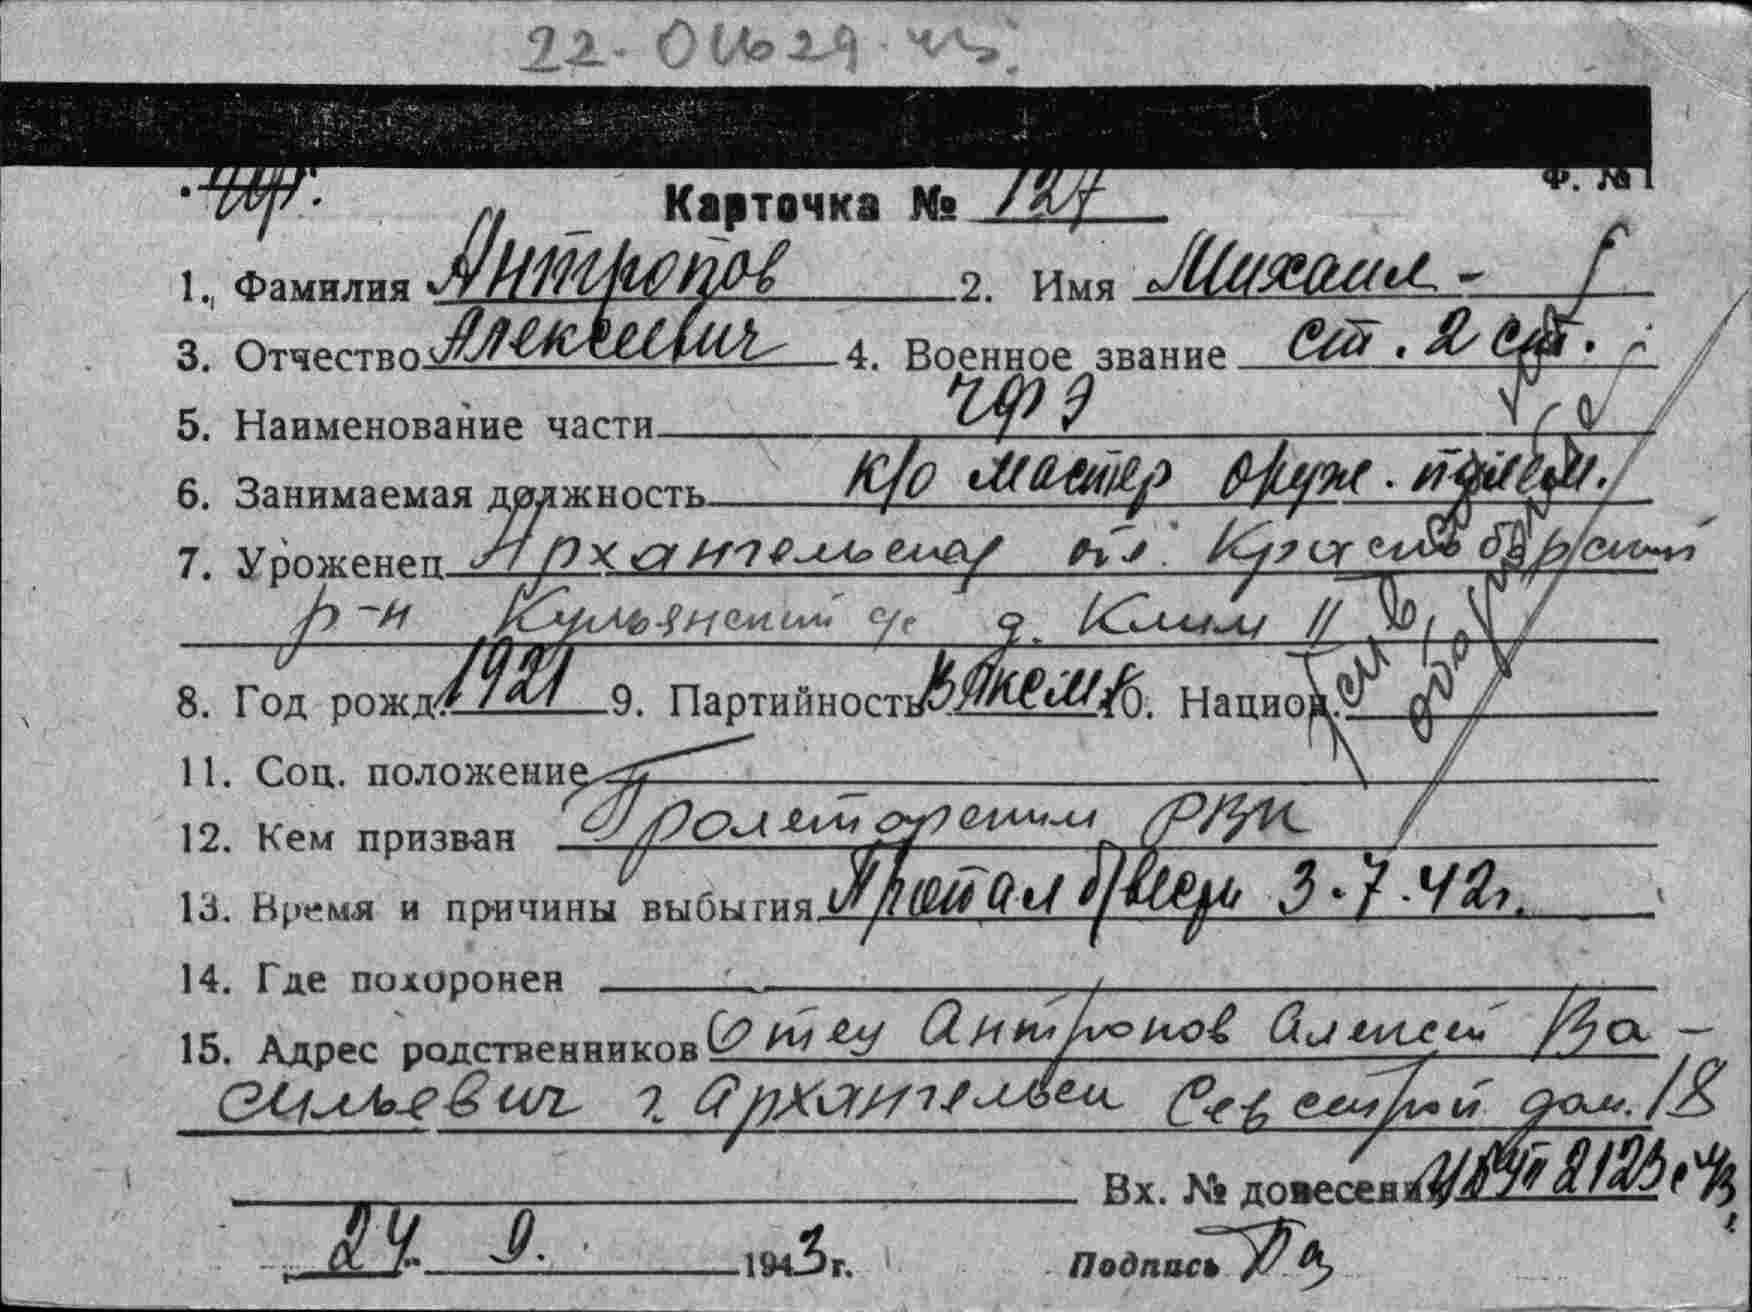 22.
Карточка № 127
Ф. № 1
1. Фамилия Антропов 2. Имя Михаил -
3. Отчество Алексеевич 4. Военное звание ст. 2 ст.
5. Наименование части ЧФЭ
6. Занимаемая должность к/о мастер оруж. пулем.
7. Уроженец Архангельская обл. Красноборский
р-н Кульянский с/с д. Клим II
8. Год рожд. 1921 9. Партийность ВЛКСМ 10. Национ.
11. Соц. положение
12. Кем призван Пролетарским РВК
13. Время и причины выбытия Пропал б/вести 3.7.42г.
14. Где похоронен
15. Адрес родственников Отец Антропов Алексей Ва-
сильевич г. Архангельск Севстрой дом. 18
Вх. № донесения 2123
24. 9. 1943г. Подпись